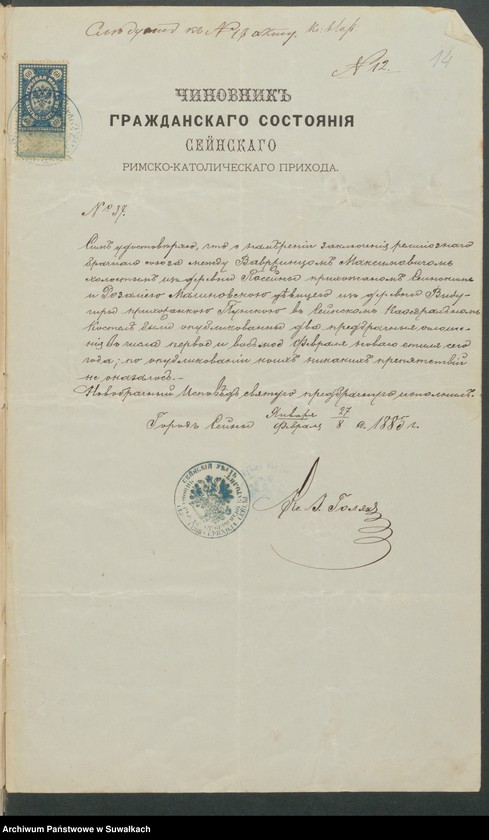 Слѣдуетъ къ №
№ 12.
14
ЧИНОВНИКЪ
ГРАЖДАНСКАГО СОСТОЯНІЯ
СЕЙНСКАГО
РИМСКО-КАТОЛИЧЕСКАГО ПРИХОДА.
№ 37.
Симъ удостовѣряю, что о намѣреніи заключенія религіознаго
брачнаго союза между Вавржинцомъ Максимовичомъ
холостымъ изъ деревни прихожаномъ Сейнскимъ
и Розаліею Малиновскою дѣвицею изъ деревни
прихожанкою Пунскою въ Сейнскомъ Кафедральномъ
Костелѣ были опубликованны два предбрачныя оглаше-
нія въ числа первое и восьмое Февраля новаго стиля сего
года; по опубликованіи коихъ никакихъ препятствій
не оказалось.-
Новобрачный Исповѣдь святую предбрачную исполнилъ.
Городъ Сейны Января 27 / Февраля 8 д. 1885 г.
СЕЙНСКІЙ УѢЗДЪ
Archiwum Państwowe w Suwałkach